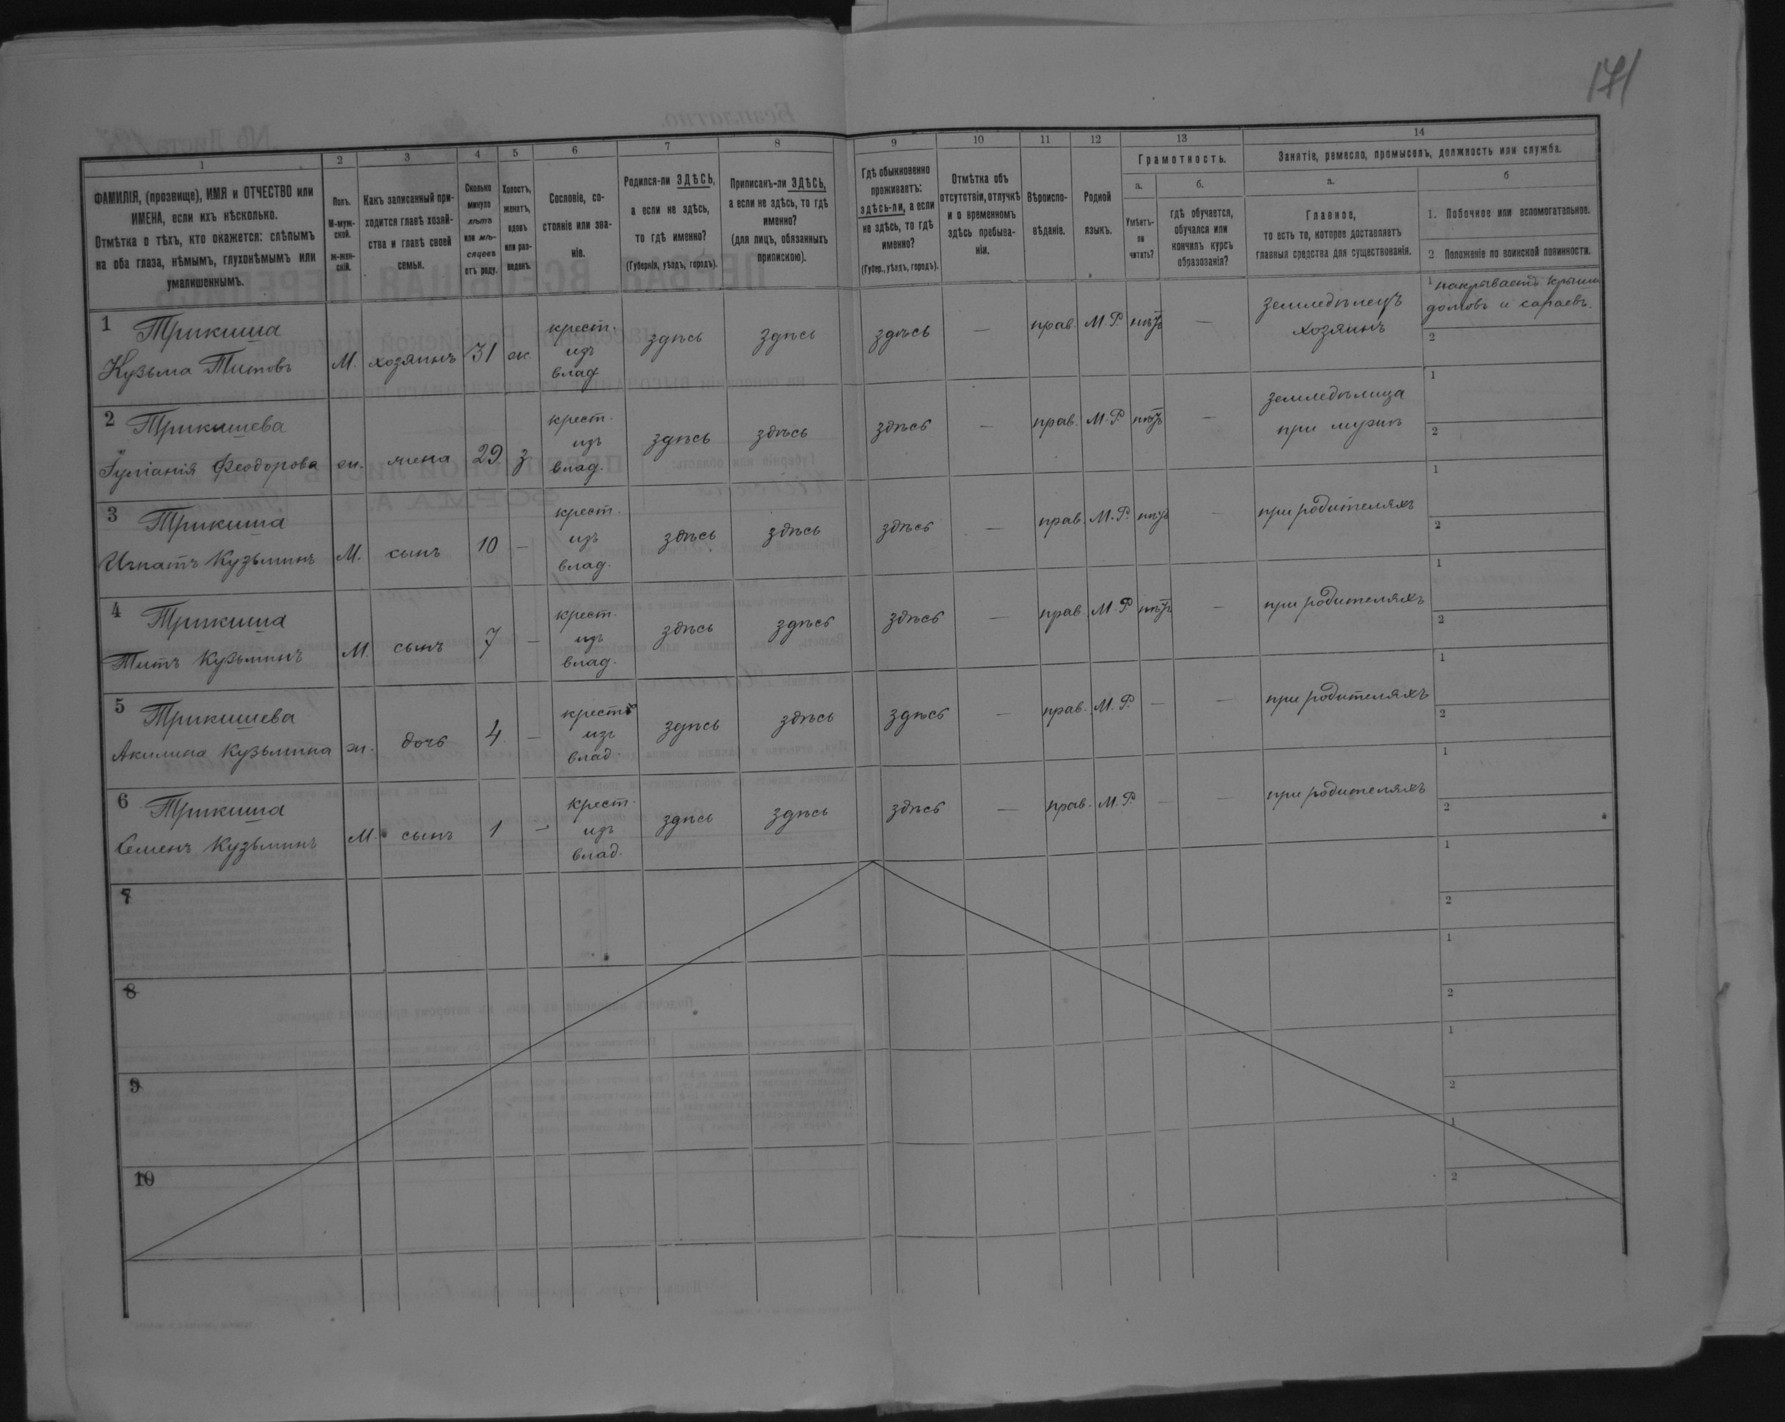 171
1
2
3
4
5
6
7
8
9
10
11
12
13
14
ФАМИЛІЯ, (прозвище), ИМЯ и ОТЧЕСТВО или
ИМЕНА, если ихъ нѣсколько.
Отмѣтка о тѣхъ, кто окажется: слѣпымъ
на оба глаза, нѣмымъ, глухонѣмымъ или
умалишеннымъ.
Полъ.
М-муж-
ской.
ж-жен-
скій.
Какъ записанный при-
ходится главѣ хозяй-
ства и главѣ своей
семьи.
Сколько
минуло
лѣтъ
или мѣ-
сяцевъ
отъ роду.
Холостъ,
женатъ,
вдовъ
или раз-
веденъ.
Сословіе, со-
стояніе или зва-
ніе.
Родился-ли ЗДѢСЬ,
а если не здѣсь,
то гдѣ именно?
(Губернія, уѣздъ, городъ).
Приписанъ-ли ЗДѢСЬ,
а если не здѣсь, то гдѣ
именно?
(для лицъ, обязанныхъ
припискою).
Гдѣ обыкновенно
проживаетъ:
здѣсь-ли, а если
не здѣсь, то гдѣ
именно?
(Губер., уѣздъ, городъ).
Отмѣтка объ
отсутствіи, отлучкѣ
и о временномъ
здѣсь пребыва-
ніи.
Вѣроиспо-
вѣданіе.
Родной
языкъ.
Грамотность.
а.
Умѣетъ-
ли
читать?
б.
гдѣ обучается,
обучался или
кончилъ курсъ
образованія?
Занятіе, ремесло, промыселъ, должность или служба.
а.
Главное,
то есть то, которое доставляетъ
главныя средства для существованія.
б
1. Побочное или вспомогательное.
2 Положеніе по воинской повинности.
1 Трикиша
Кузьма Титовъ
М. хозяинъ 31 ж.
крест.
изъ
влад.
здѣсь здѣсь здѣсь — прав. М.Р. нѣтъ —
земледѣлецъ
хозяинъ
1 накрываетъ крыши
домовъ и сараевъ.
2
2 Трикишева
Гуліанія Феодорова
ж. жена 29 з
крест.
изъ
влад.
здѣсь здѣсь здѣсь — прав. М.Р. нѣтъ —
земледѣлица
при мужѣ
1
2
3 Трикиша
Игнатъ Кузьминъ
М. сынъ 10 —
крест.
изъ
влад.
здѣсь здѣсь здѣсь — прав. М.Р. нѣтъ —
при родителяхъ
1
2
4 Трикиша
Титъ Кузьминъ
М сынъ 7 —
крест.
изъ
влад.
здѣсь здѣсь здѣсь — прав. М.Р. нѣтъ —
при родителяхъ
1
2
5 Трикишева
Акилина Кузьмина
ж. дочь 4 —
крест.
изъ
влад.
здѣсь здѣсь здѣсь — прав. М.Р. — —
при родителяхъ
1
2
6 Трикиша
Семенъ Кузьминъ
М. сынъ 1 —
крест.
изъ
влад.
здѣсь здѣсь здѣсь — прав. М.Р — —
при родителяхъ
1
2
7
1
2
8
1
2
9
1
2
10
1
2